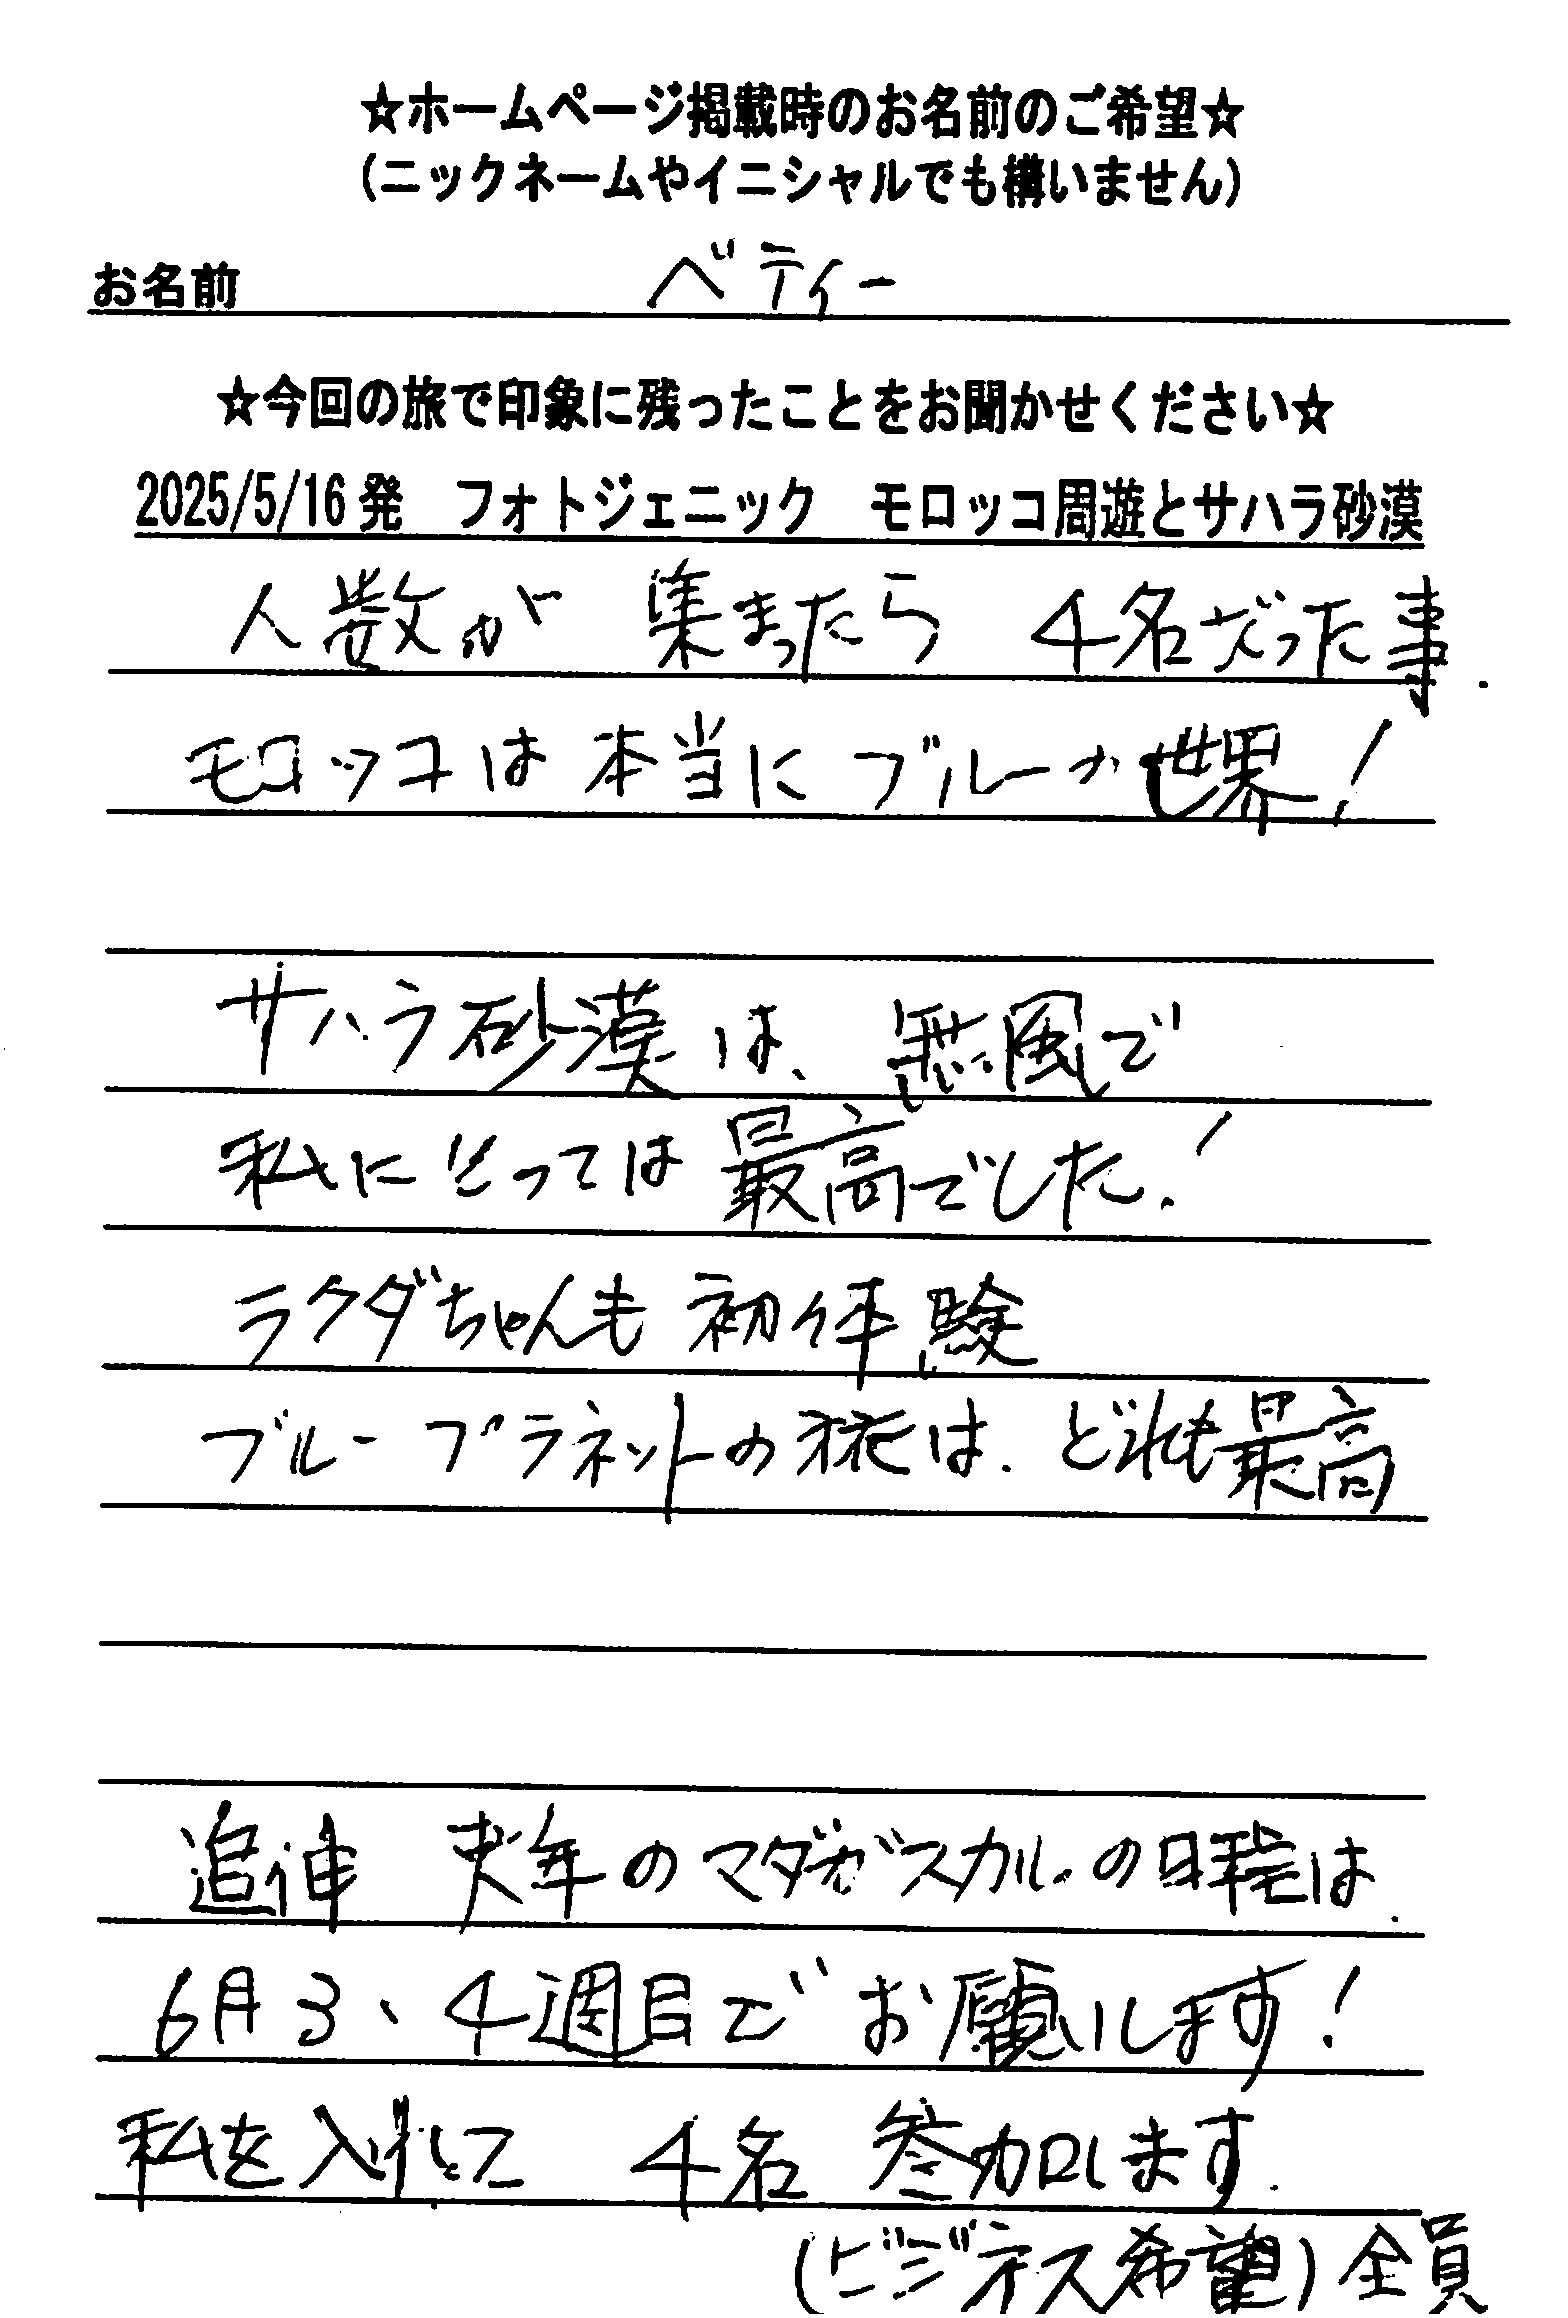 ☆ホームページ掲載時のお名前のご希望☆
(ニックネームやイニシャルでも構いません)
お名前 ベティー
☆今回の旅で印象に残ったことをお聞かせください☆
2025/5/16発 フォトジェニック モロッコ周遊とサハラ砂漠
人数が 集まったら 4名だった事.
モロッコは 本当に ブルーな世界!
サハラ砂漠は、無風で
私にとっては 最高でした.!
ラクダちゃんも 初体験
ブループラネットの旅は、どれも最高
追伸 来年のマダガスカルの日程は.
6月3、4週目で お願いします!
私を入れて 4名 参加します.
(ビジネス希望)全員